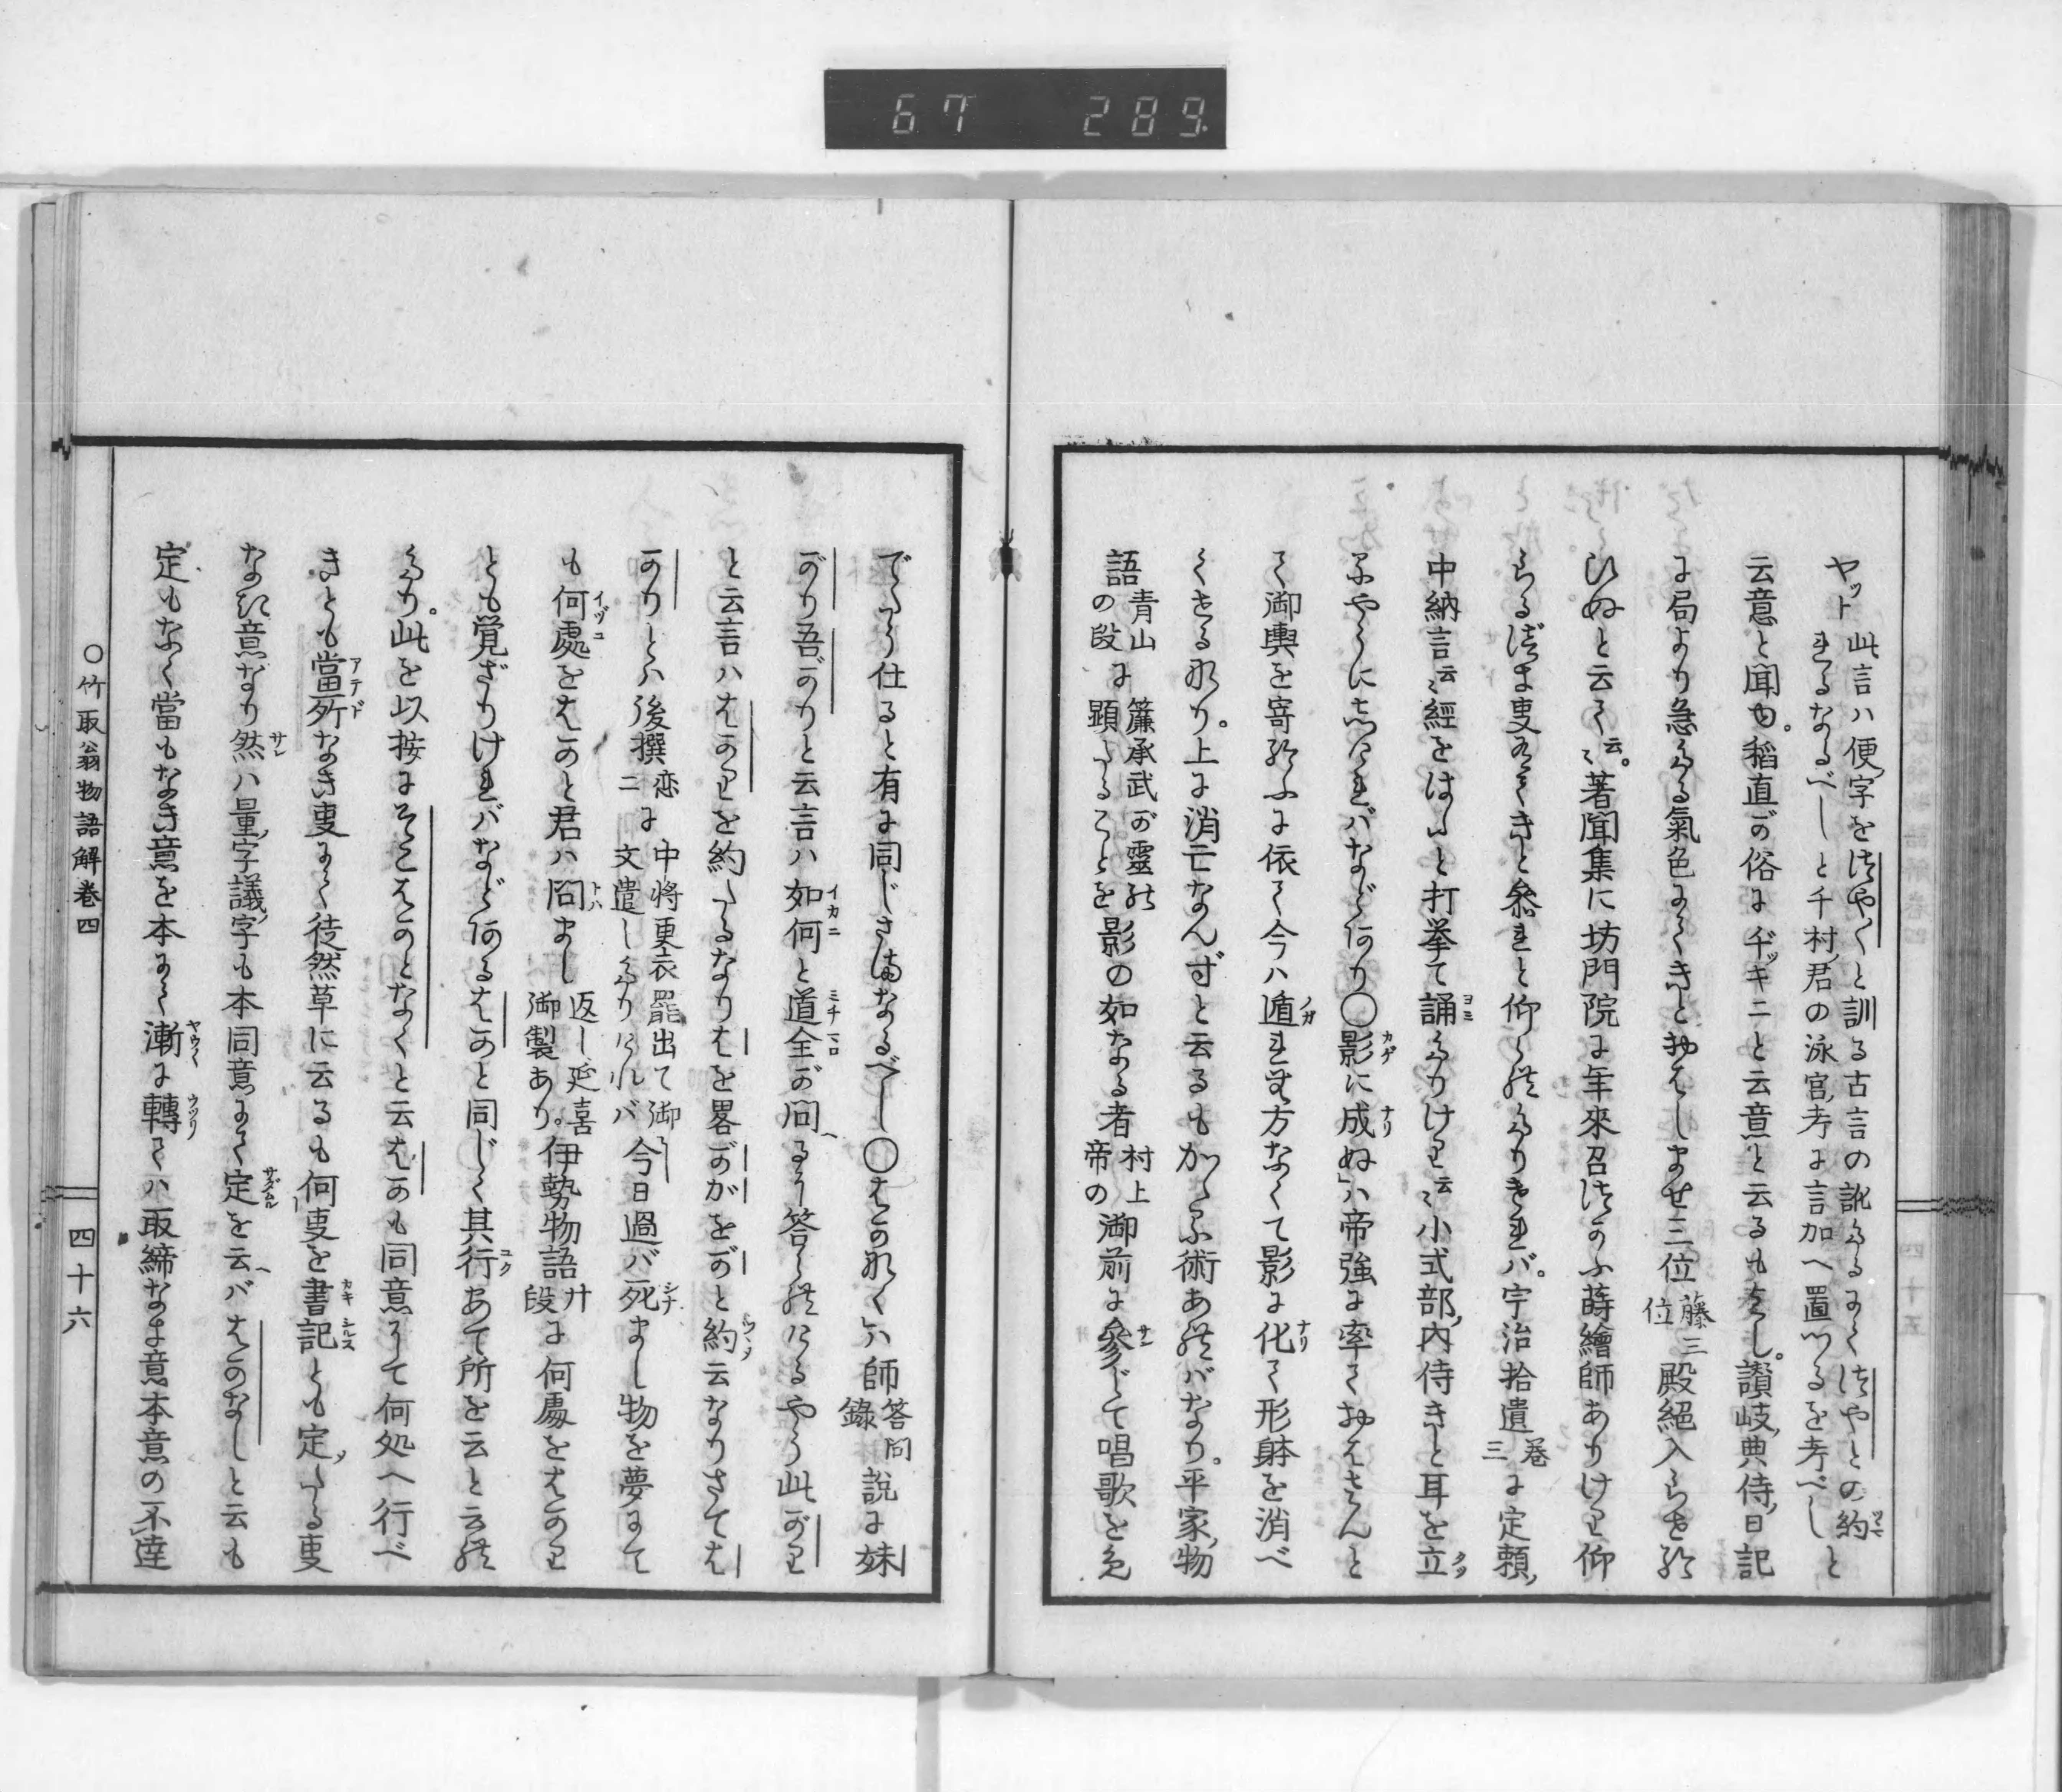 67 289
ヤット此言ハ便字をはやくと訓る古言の訛たるにてはやとの約と
きるなるべしと千村君の泳宮考に言加へ置つるを考べし
云意と聞ゆ。稲直が俗にヂッキニと云意と云るもよし。讃岐典侍日記
に局より急たる氣色にてきとおはしませ三位藤三位殿絕入らせ給
ひぬと云て云々。著聞集に坊門院に年來召つかふ蒔繪師ありけり仰
らるべき事有てきと參れと仰られたりければ。宇治拾遺巻三に定頼
中納言云々經をはたと打挙て誦たりけり云々小式部内侍きと耳を立
るやうにしければなどあり〇影に成ぬハ帝強に率ておはさんと
て御輿を寄給ふに依て今ハ遁れむ方なくて影に化て形躰を消べ
くきる也り。上に消亡なんずと云るもかゝる術あればなり。平家物
語青山の段に簾承武が靈の顕たることを影の如なる者村上帝の御前に參じて唱歌を色
でゝう仕ると有に同じさまなるべし〇はかなくハ師答問錄説に妹
がり吾がりと云言ハ如何と道全が問へるに答られけるやう此がり
と云言ハはかりを約たるなりはを畧がかをがと約云なりさては
かりとハ後撰恋二に中将更衣罷出て御文遣したりければ今日過バ死まし物を夢にて
も何處をはかと君ハ問まし返し延喜御製あり。伊勢物語廾段に何處をはかり
とも覚ざりければなどあるはかと同じく其行あて所を云と云れ
たり。此を以按にそこはかとなくと云はかも同意にて何処へ行べ
きとも當所なき事にて徒然草に云るも何事を書記とも定たる事
なき意なり然ハ量字議字も本同意にて定を云へバはかなしと云も
定もなく當もなき意を本にて漸に轉てハ取締なき意本意の不達
〇竹取翁物語解巻四
四十六